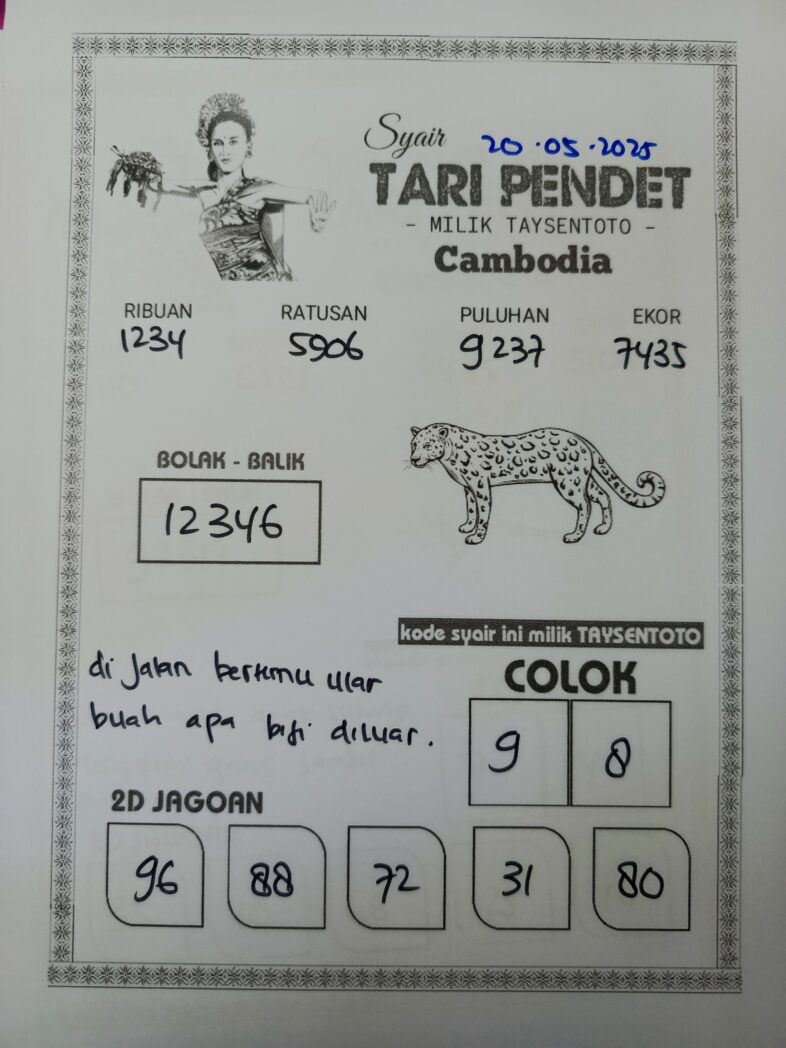 Syair 20.05.2025
TARI PENDET
- MILIK TAYSENTOTO -
Cambodia
RIBUAN RATUSAN PULUHAN EKOR
1234 5906 9237 7435
BOLAK - BALIK
12346
kode syair ini milik TAYSENTOTO
di Jalan bertemu ular
buah apa biji diluar.
COLOK
9 8
2D JAGOAN
96 88 72 31 80